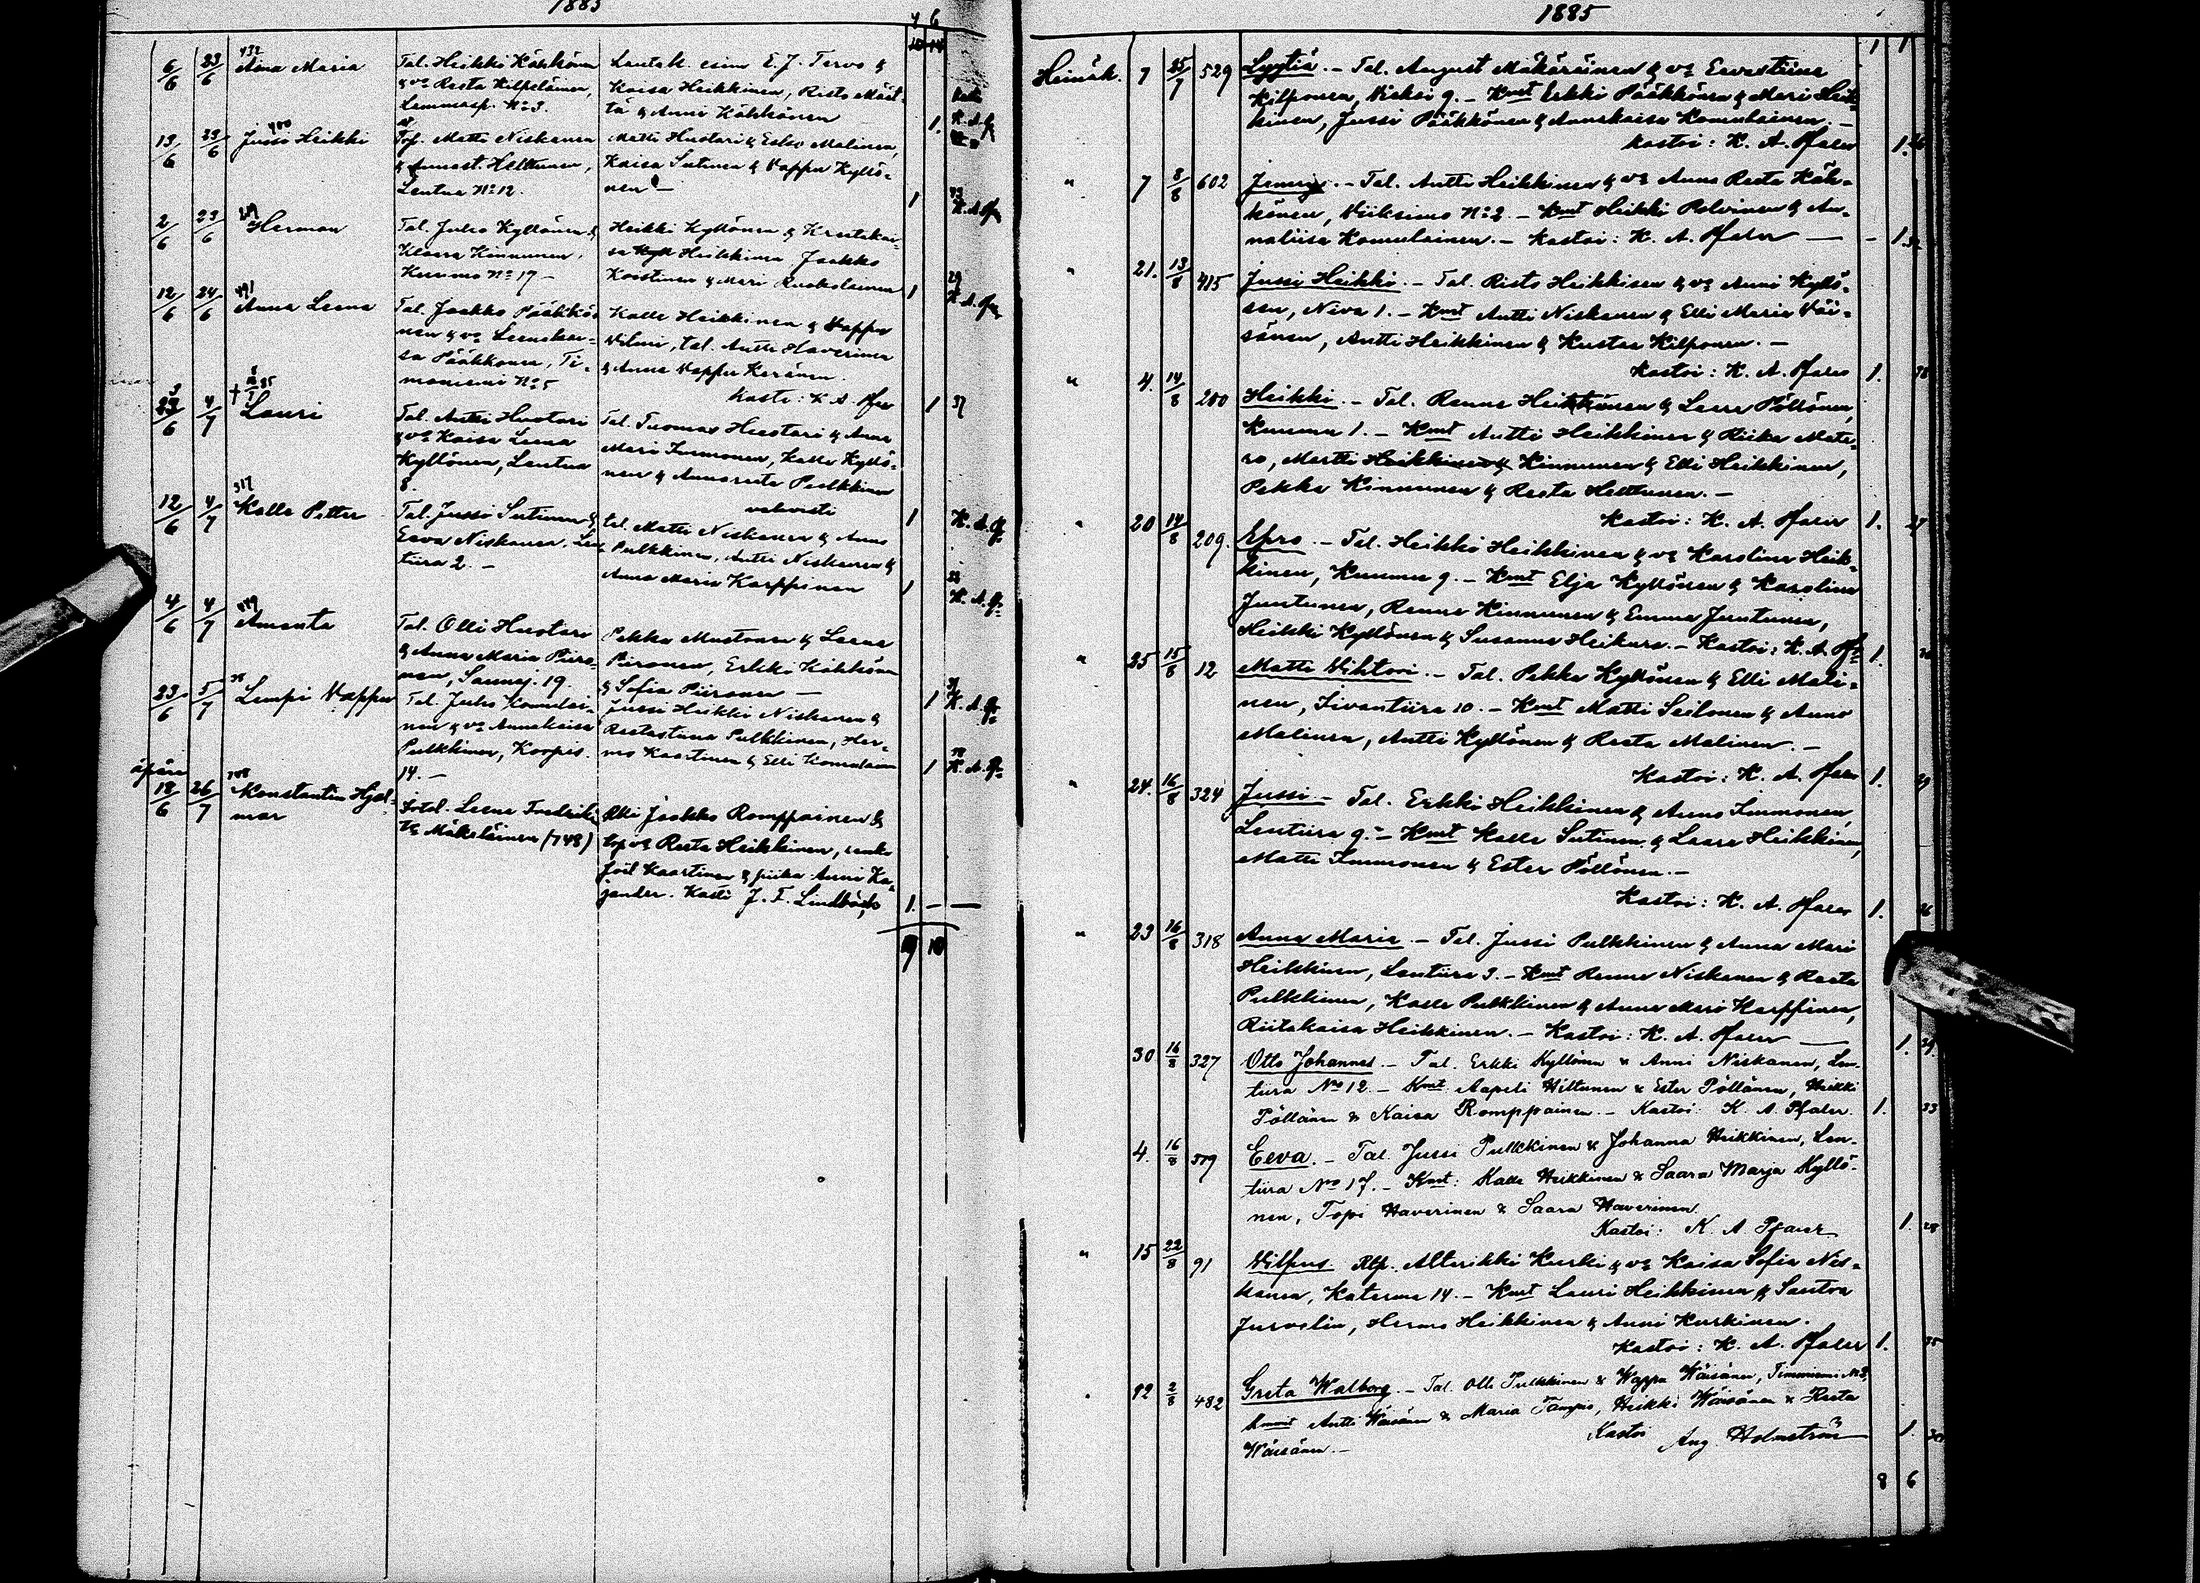 1885
6/6 23/6 432 Anna Maria
Tal. Heikki Kähkönen
& vo Reeta Kilpeläinen,
Lammasp. No 3.
Lautak. esim E. J. Tervo &
Kaisa Heikkinen, Risto Määt-
tä & Anni Kähkönen
13/6 23/6 Jussi Heikki
Matti Niskanen
& Annast. Helttunen,
Lentua No 12.
Matti Huotari & Esko Malinen,
Kaisa Sutinen & Vappu Kyllö-
nen —
1
K. A. Pf
2/6 23/6 Herman
Tal. Juho Kyllönen &
Klaara Kinnunen,
Kuumo No 17 —
Heikki Kyllönen & Kreetakai-
sa Heikkinen Jaakko
Koistinen & Mari Ruokolainen
1
12/6 24/6 491 Anna Leena
Tal. Jaakko Pääkkö-
nen & vo Leenakai-
sa Pääkkönen, Ti-
moniemi No 5
Kalle Heikkinen & Vappu
Wilmi, tal. Antti Haverinen
& Anna Vappu Keränen.
Kasti: K. A. Pfaler
1 37
4/7 Lauri
Tal. Antti Huotari
& vo Kaisa Leena
Kyllönen, Lentua
8.
Tal. Tuomas Huotari & Anna
Mari Immonen, Kalle Kyllö-
nen & Annareeta Pulkkinen
vahvisti
1 K. A. Pf
12/6 4/7 317 Kalle Petter
Tal. Jussi Sutinen &
Eeva Niskanen, Len-
tiira 2. —
tal. Matti Niskanen & Anna
Pulkkinen, Antti Niskanen &
Anna Maria Karppinen
1
4/6 4/7 Amanta
Tal. Olli Huotari
& Anna Maria Piiro-
nen, Saunaj. 19.
Pekka Mustonen & Leena
Piironen, Erkki Kähkönen
& Sofia Piironen —
1
23/6 5/7 Lempi Vappu
Tal. Juho Komulai-
nen & vo Annakaisa
Pulkkinen, Korpis.
14. —
Jussi Heikki Niskanen &
Reetastiina Pulkkinen, Her-
mo Kaartinen & Elli Komulainen
1 K. A. Pf
äpärä
18/6 26/7 748 Konstantin Hjal-
mar
Leena Fredrika
Mäkeläinen (748)
Olli Jaakko Romppainen &
vo Reeta Heikkinen, renki
Joel Kaartinen & piika Anni Ka-
jander. Kasti J. F. Lindbäck
1. — —
9 10
1885
Heinäk. 7 25/7 529 Lyytiä. — Tal. August Mäkäräinen & vo Eevastiina
Kilponen, Vieksi 9. — Kmt Erkki Pääkkönen & Mari Heik-
kinen, Jussi Pääkkönen & Annakaisa Komulainen. —
Kastoi: K. A. Pfaler 1.
" 7 8/8 602 Jenny. — Tal. Antti Heikkinen & vo Anna Reeta Käh-
könen, Viiksimo No 2. — Kmt Heikki Polvinen & An-
naliisa Komulainen. — Kastoi: K. A. Pfaler — 1.
" 21. 13/8 415 Jussi Heikki. — Tal. Risto Heikkinen & vo Anni Kyllö-
nen, Niva 1. — Kmt Antti Niskanen & Elli Maria Väi-
sänen, Antti Heikkinen & Kustaa Kilponen. —
Kastoi: K. A. Pfaler 1.
" 4. 14/8 200 Heikki. — Tal. Renne Heikkinen & Leena Pöllönen,
Kuumu 1. — Kmt Antti Heikkinen & Riika Mate-
ro, Martti Heikkinen & Kinnunen & Elli Heikkinen,
Pekka Kinnunen & Reeta Helttunen. —
Kastoi: K. A. Pfaler 1. 27
" 20 14/8 209. Epro. — Tal. Heikki Heikkinen & vo Karolina Heik-
kinen, Kuumu 9. — Kmt Elja Kyllönen & Karolina
Juntunen, Renne Kinnunen & Emma Juntunen,
Heikki Kyllönen & Susanna Heikura. — Kastoi: K. A. Pf 1.
" 25 15/8 12 Matti Vihtori. — Tal. Pekka Kyllönen & Elli Mali-
nen, Iivantiira 10. — Kmt Matti Seilonen & Anna
Malinen, Antti Kyllönen & Reeta Malinen. —
Kastoi: K. A. Pfaler 1.
" 24. 16/8 324 Jussi — Tal. Erkki Heikkinen & Anna Immonen,
Lentiira 9. — Kmt Kalle Sutinen & Laara Heikkinen,
Matti Immonen & Ester Pöllönen. —
Kastoi: K. A. Pfaler 1.
" 23 16/8 318 Anna Maria. — Tal. Jussi Pulkkinen & Anna Mari
Heikkinen, Lentiira 3. — Kmt Renne Niskanen & Reeta
Pulkkinen, Kalle Pulkkinen & Anna Mari Karppinen,
Riitakaisa Heikkinen. — Kastoi: K. A. Pfaler — 1.
30 16/8 327 Otto Johannes. — Tal. Erkki Kyllönen & Anni Niskanen, Len-
tiira No 12 — Kmt. Aapeli Hiltunen & Ester Pöllänen, Heikki
Pöllänen & Kaisa Romppainen. — Kastoi: K. A. Pfaler. 1. 33
4. 16/8 379 Eeva. — Tal. Jussi Pulkkinen & Johanna Heikkinen, Len-
tiira No 17. — Kmt: Kalle Heikkinen & Saara Marja Kyllö-
nen, Topi Haverinen & Saara Haverinen.
Kastoi: K. A Pfaler 1. 28
" 15 22/8 91 Vilpus. Rtp. Alterikki Kurki & vo Kaisa Sofia Nis-
kanen, Katerma 14. — Kmt Lauri Heikkinen & Santra
Jurvelin, Hermo Heikkinen & Anni Kurkinen.
Kastoi: K. A. Pfaler 1. 35
" 12 2/8 482 Greta Walborg. — Tal. Olli Pulkkinen & Wappu Wäisänen, Timoniemi No 8,
kmt Antti Wäisänen & Maria Tampio, Heikki Wäisänen & Reeta
Wäisänen. — Kastoi Aug. Holmström 1
8 6